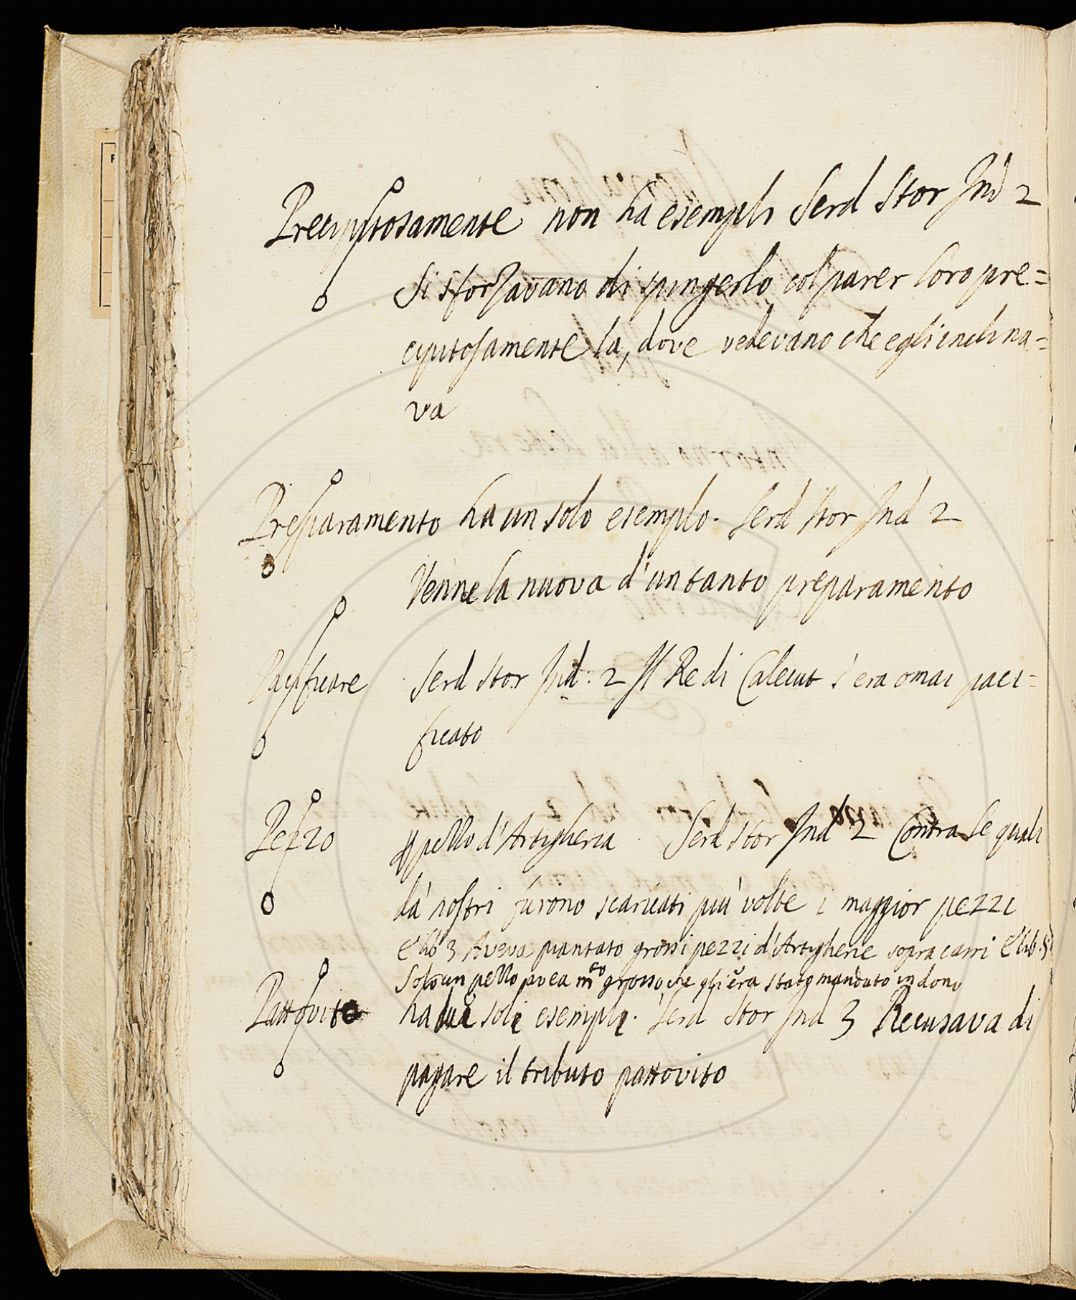 Precipitosamente non ha esempli Serd Stor Ind 2
Si sforzavano di spingerlo col parer loro pre=
cipitosamente la, dove vedevano che egli inchina=
va
Preparamento ha un solo esemplo. Serd Stor Ind 2
Venne la nuova d'un tanto preparamento
Pacificare Serd Stor Ind. 2 Il Re di Calecut s'era omai paci=
ficato
Pezzo d'Artigheria Serd Stor Ind 2 Contra le quali
da nostri furono scaricati più volte i maggior pezzi
E lib 3 Aveva piantato grossi pezzi d'Artigherie sopra carri E lib. 5
Solo un pezzo avea mto grosso che gli era stato mandato in dono
Pattovito ha due soli esempli. Serd Stor Ind 3 Recusava di
pagare il tributo pattovito